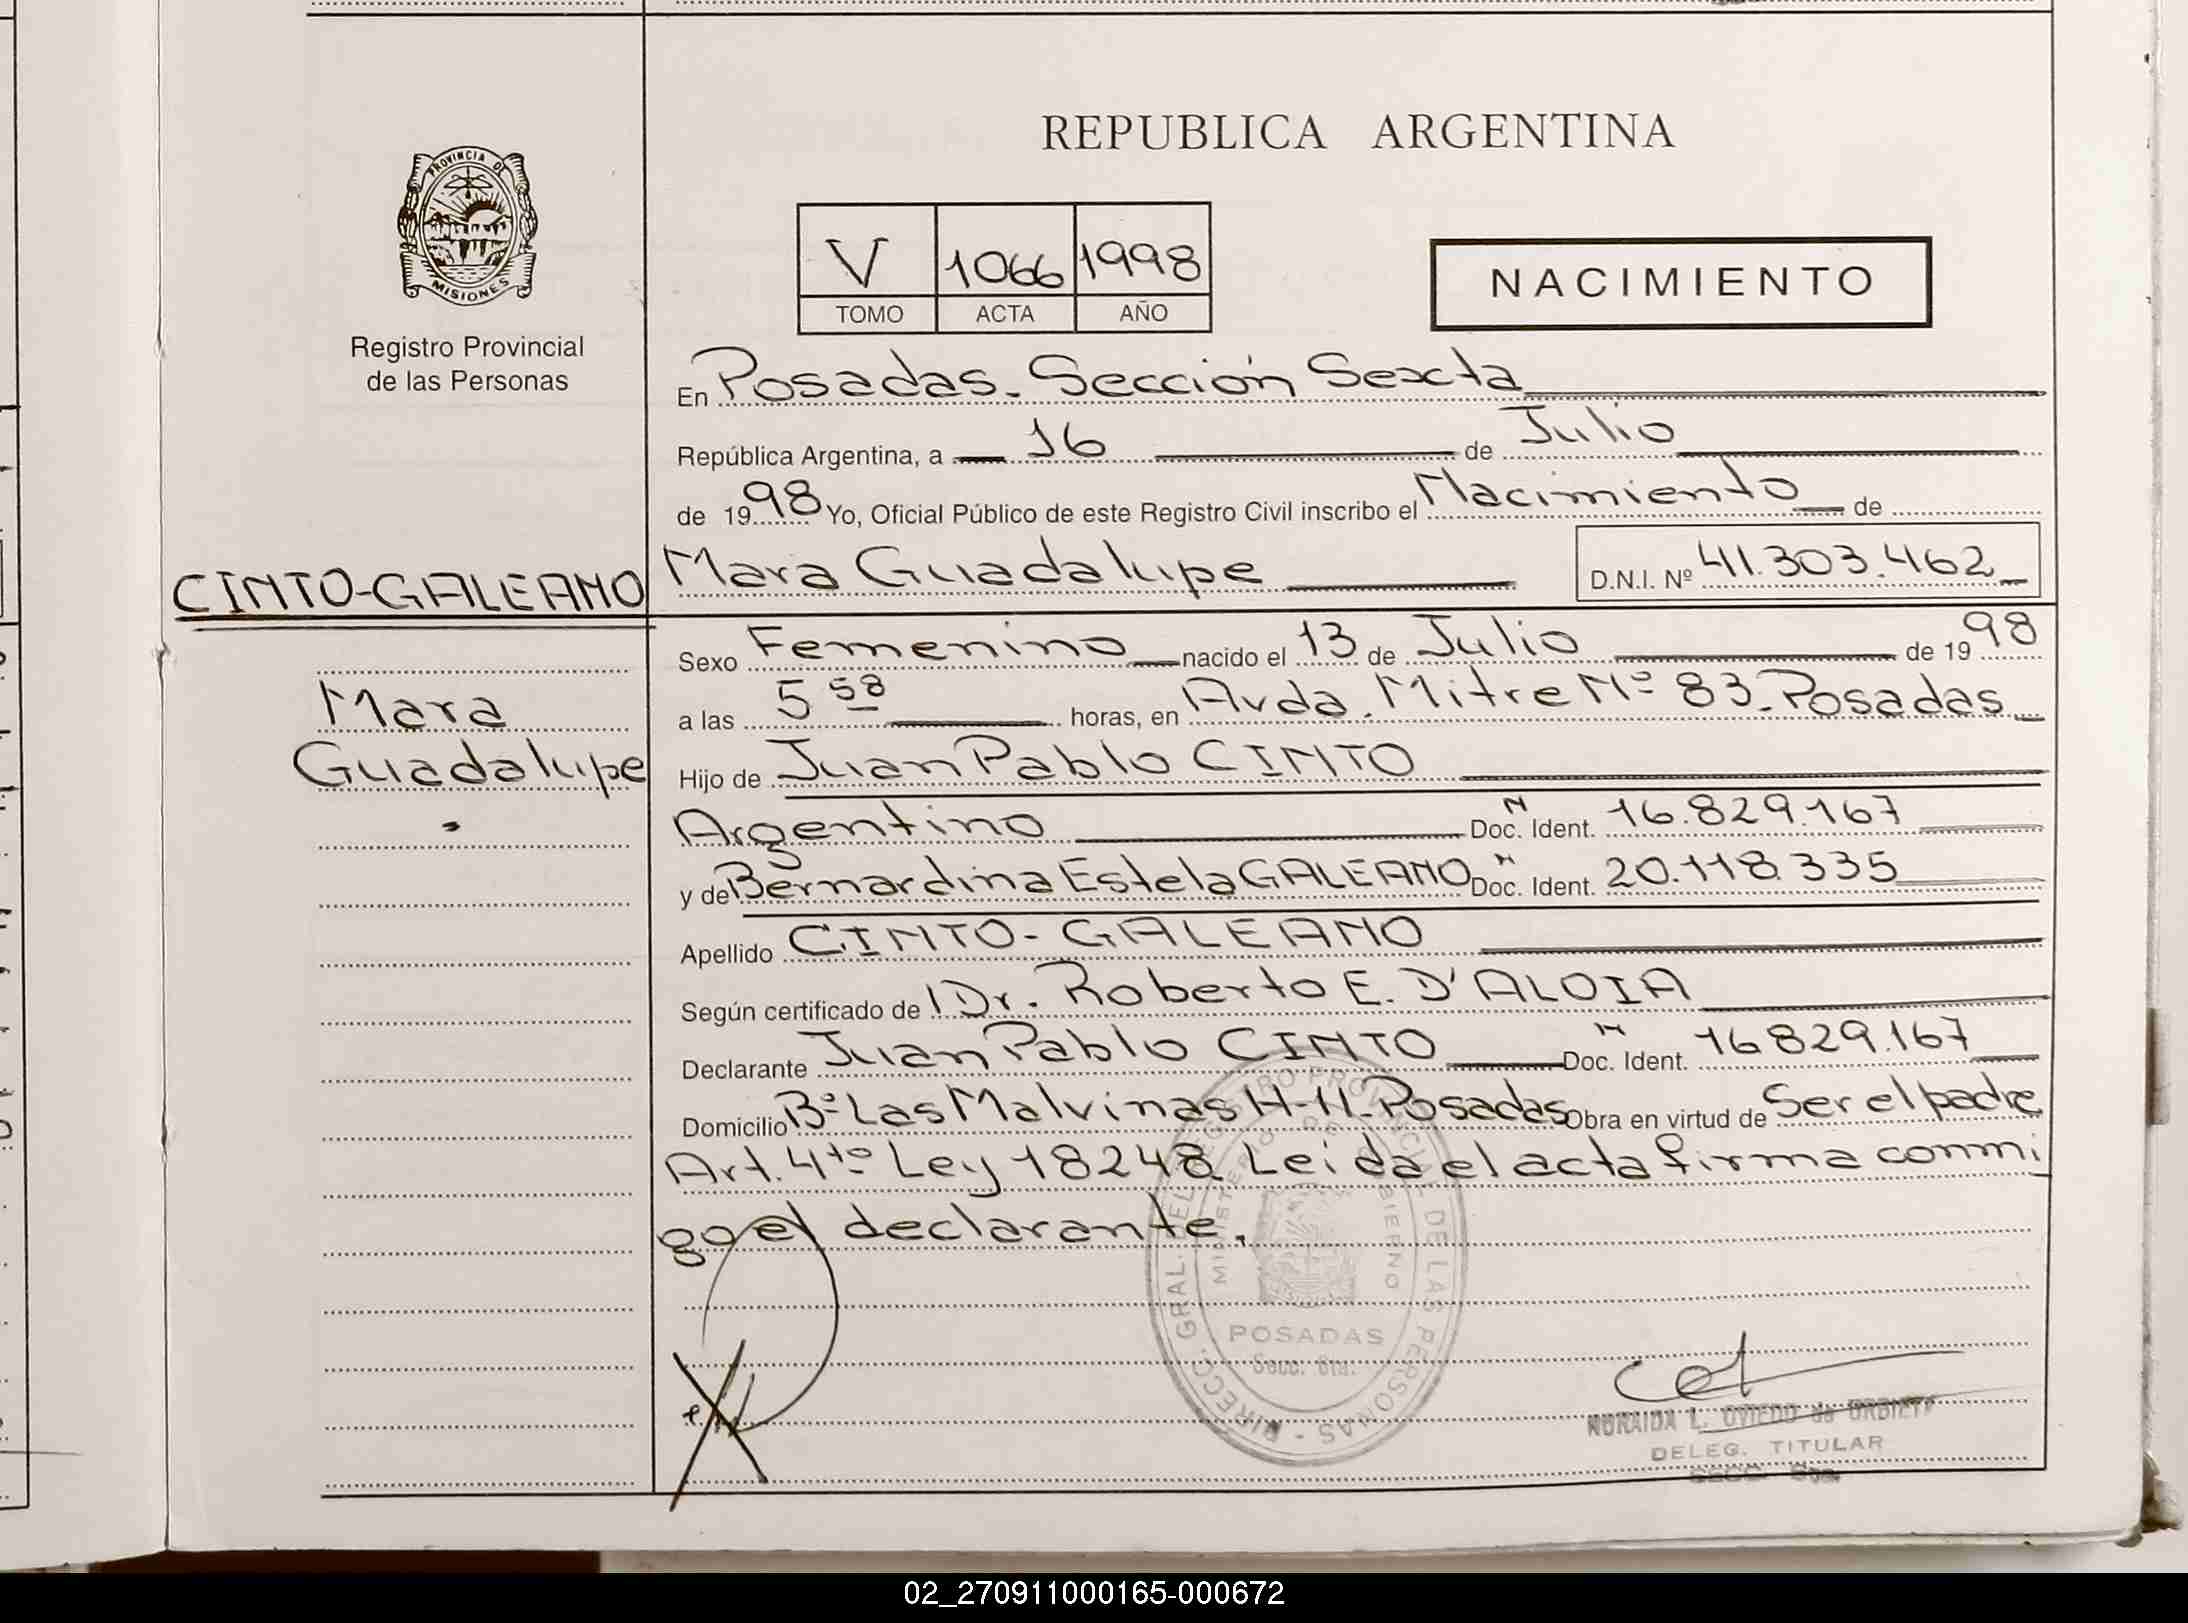 REPUBLICA ARGENTINA
PROVINCIA DE
MISIONES
Registro Provincial
de las Personas
V 1066 1998
TOMO ACTA AÑO
NACIMIENTO
En Posadas. Sección Sexta
República Argentina, a 16 de Julio
de 1998 Yo, Oficial Público de este Registro Civil inscribo el Nacimiento de
Mara Guadalupe D.N.I. Nº 41.303.462
CINTO-GALEANO
Mara
Guadalupe
Sexo Femenino nacido el 13 de Julio de 1998
a las 5 58 horas, en Avda. Mitre Nº 83. Posadas
Hijo de Juan Pablo CINTO
Argentino Doc. N Ident. 16.829.167
y de Bernardina Estela GALEANO Doc. N Ident. 20.118.335
Apellido CINTO-GALEANO
Según certificado de Dr. Roberto E. D'ALOIA
Declarante Juan Pablo CINTO Doc. N Ident. 16829.167
Domicilio Bº Las Malvinas H-11-Posadas Obra en virtud de Ser el padre
Art. 4to Ley 18248. Leida el acta firma conmi
go el declarante.
DIRECC. GRAL. DEL REGISTRO PROVINCIAL DE LAS PERSONAS -
MINISTERIO DE GOBIERNO
POSADAS
Secc. 6ta.
NORAIDA L. OVIEDO de URBIETA
DELEG. TITULAR
SECC. 6ta.
02_270911000165-000672